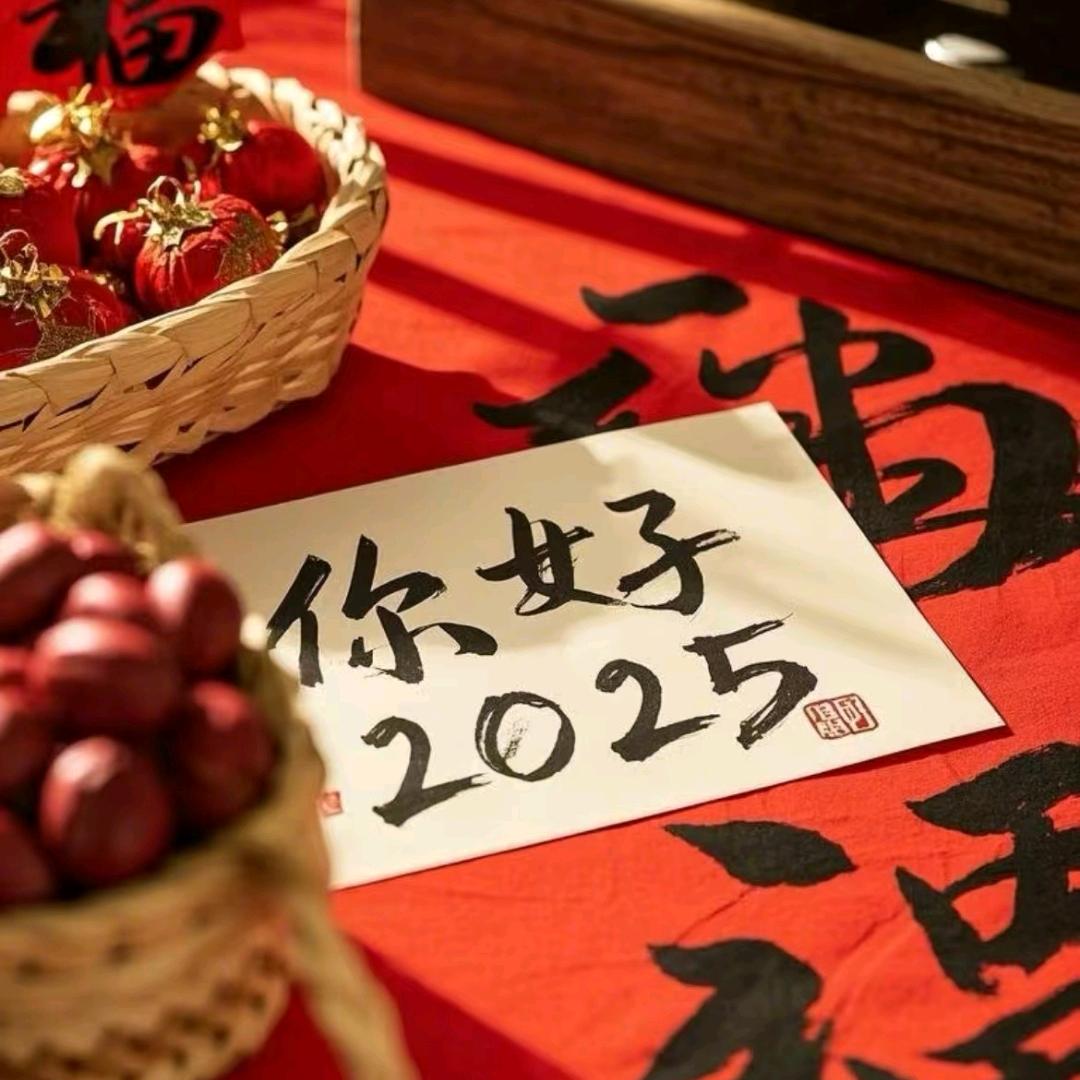 福
你好
2025